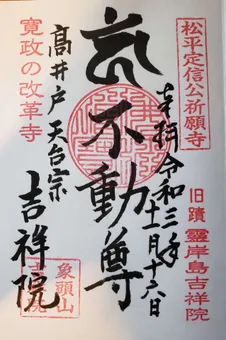 松平定信公祈願寺
旧蹟 霊岸島吉祥院
奉拝 令和三年
十一月十六日
不動尊
高井戸 天台宗
吉祥院
寛政の改革寺
象頭山